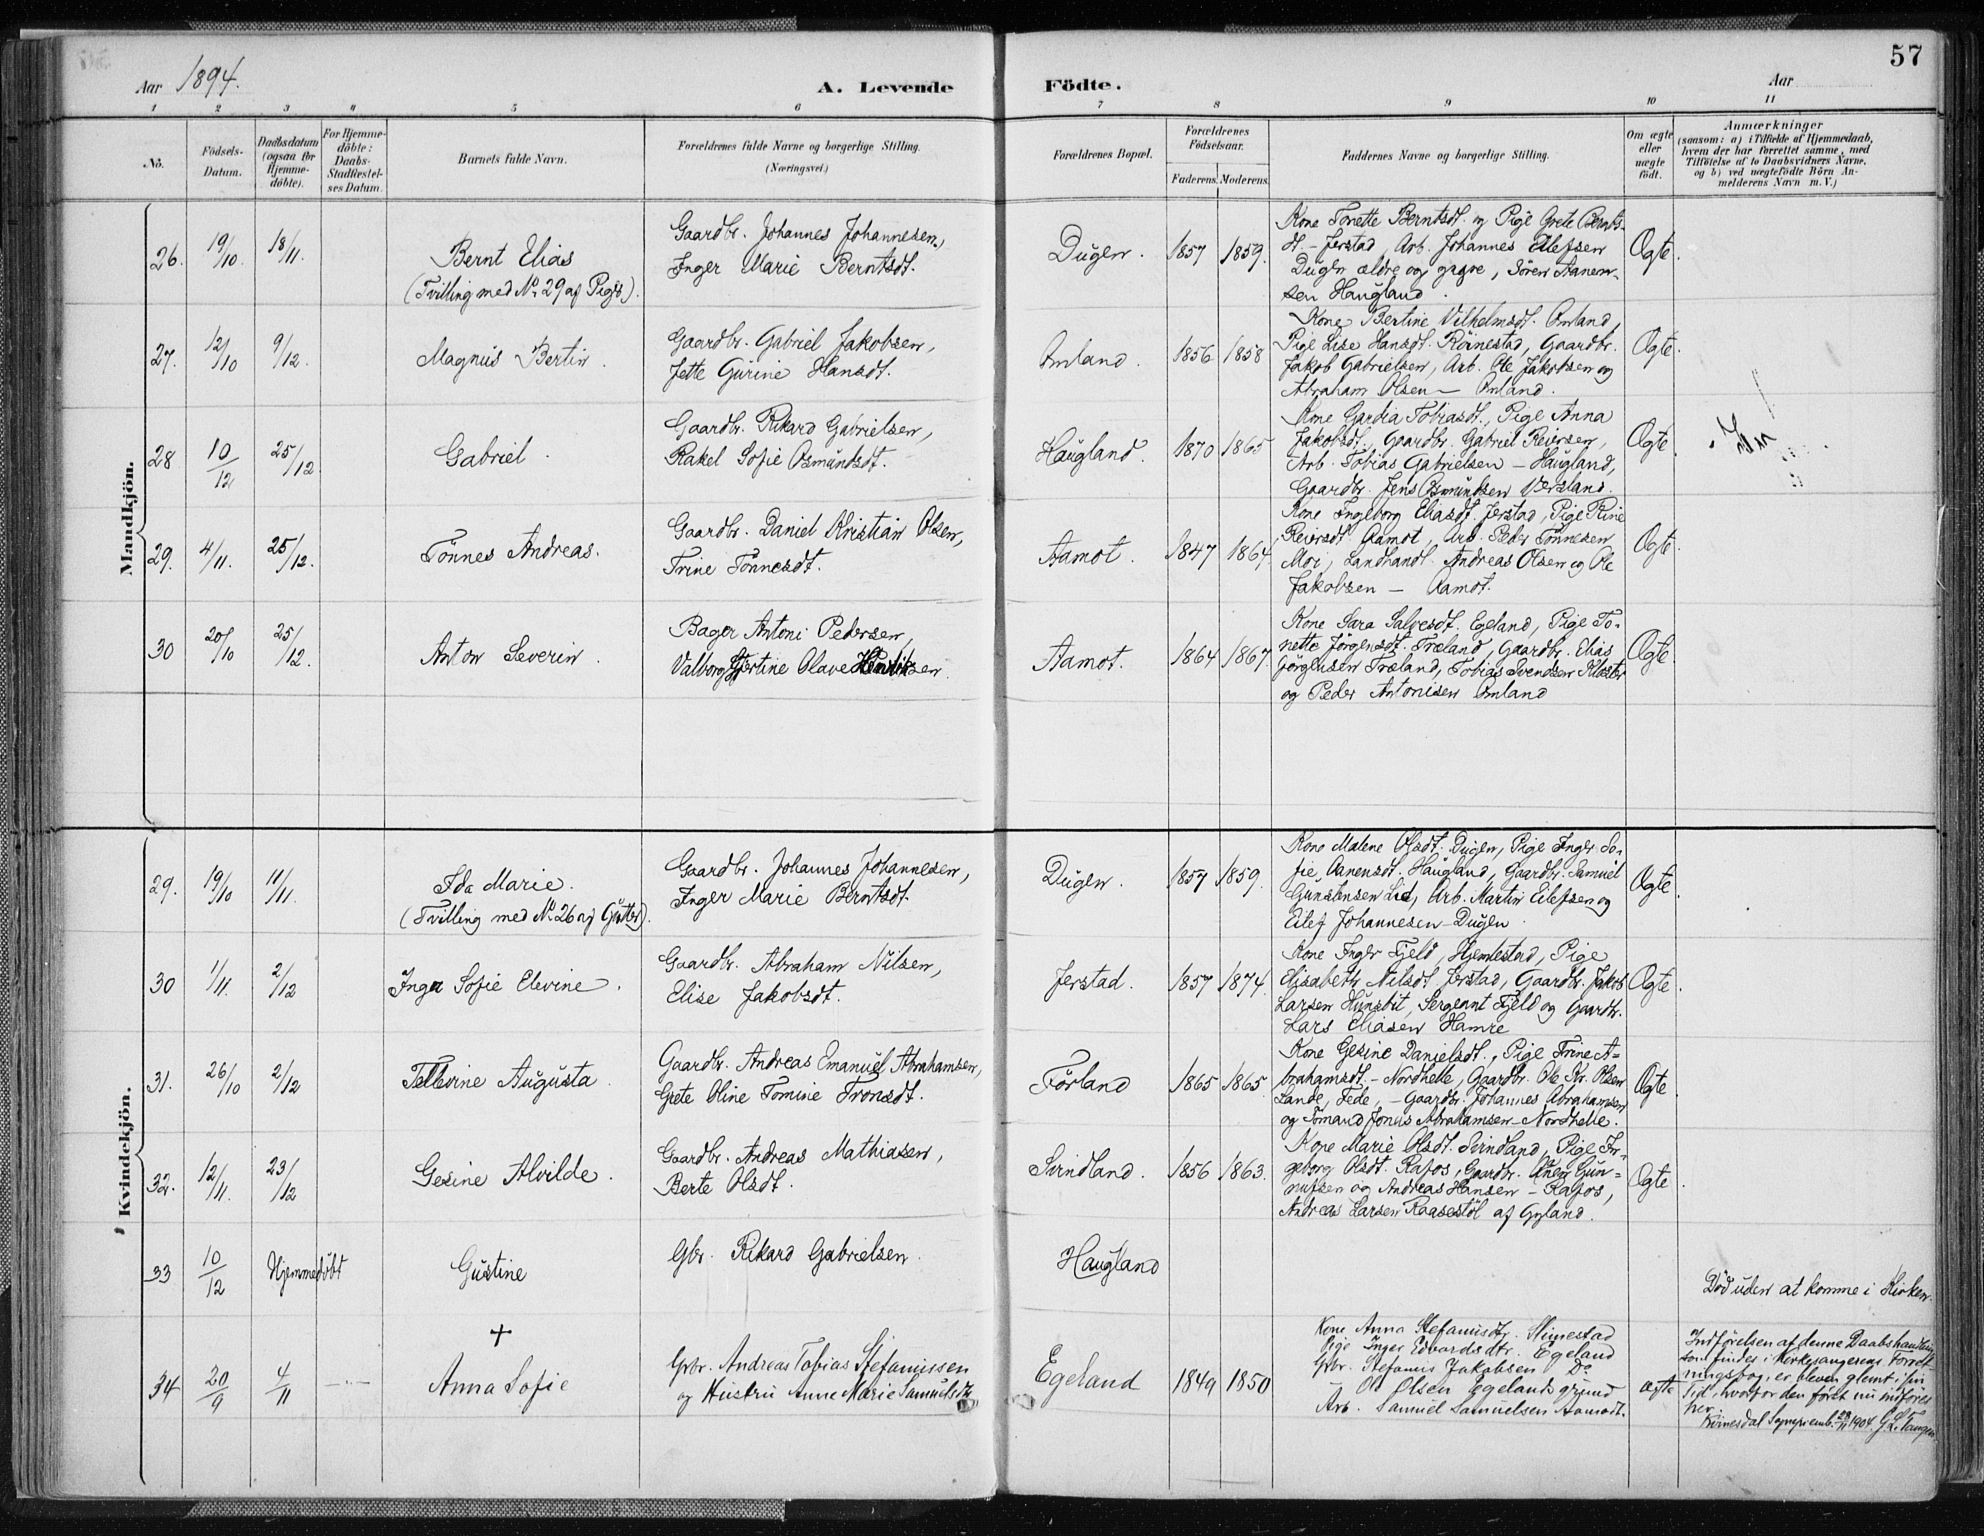 57
Aar 1894.
A. Levende Födte.
Aar
1 2 3 4 5 6 7 8 9 10 11
No.
Födsels-Datum.
Daabsdatum (ogsaa for Hjemmedöbte).
For Hjemmedöbte: Daabs-Stadfæstelses Datum.
Barnets fulde Navn.
Forældrenes fulde Navne og borgerlige Stilling.
(Næringsvei.)
Forældrenes Bopæl.
Forældrenes Födselsaar.
Faderens. Moderens.
Faddernes Navne og borgerlige Stilling.
Om ægte eller uægte födt.
Anmærkninger
(saasom: a) i Tilfælde af Hjemmedaab,
hvem der har forrettet samme, med
Tilföielse af to Daabsvidners Navne,
og b) ved uægtefödte Börn An-
melderens Navn m. V.)
Mandkjön.
26. 19/10. 18/11. Bernt Elias
(Tvilling med No. 29 af Piger).
Gaardbr. Johannes Johannesen,
Inger Marie Berntsdt.
Dugen. 1857 1859.
Kone Tonette Berntsdt. og Pige Grete Bernts-
dt. - Jerstad, Arb. Johannes Eilefsen
Dugen ældre og yngre, Sören Aanen-
sen Haugland.
Ægte.
27. 12/10 9/12. Magnus Bertin.
Gaardbr. Gabriel Jakobsen,
Jette Gurine Hansdt.
Omland. 1856 1858
Kone Bertine Vilhelmsdt. Omland,
Pige Lise Hansdt. Röinestad, Gaardbr.
Jakob Gabrielsen, Arb. Ole Jakobsen og
Abraham Olsen - Omland.
Ægte.
28 10/12 25/12. Gabriel.
Gaardbr. Rikard Gabrielsen,
Rakel Sofie Osmundsdt.
Haugland. 1870 1865
Kone Gardia Tobiasdt., Pige Anna
Jakobsdt., Gaardbr. Gabriel Reiersen,
Arb. Tobias Gabrielsen - Haugland,
Gaardbr. Jens Osmundsen Versland.
Ægte.
29. 4/11. 25/12. Tönnes Andreas.
Gaardbr. Daniel Kristian Olsen,
Trine Tönnesdt.
Aamot. 1847 1864.
Kone Ingeborg Eliasdt. Jerstad, Pige Rine
Reiersdt. Aamot, Arb. Peder Tönnesen
Moi, Landhandl. Andreas Olsen og Ole
Jakobsen - Aamot.
Ægte.
30 20/10 25/12. Anton Severin.
Bager Antoni Pedersen,
Valborg Hjertine Olave Hendriksen.
Aamot. 1864 1867.
Kone Sara Salvesdt. Egeland, Pige To-
nette Jörgensdt. Træland, Gaardbr. Elias
Jörgensen Træland, Tobias Svendsen Kloster
og Peder Antonisen Omland
Ægte.
Kvindekjön.
29. 19/10 11/11. Ida Marie.
(Tvilling med No. 26 af Gutter).
Gaardbr. Johannes Johannesen,
Inger Marie Berntsdt.
Dugen. 1857 1859.
Kone Malene Olsdt. Dugen, Pige Inger So-
fie Aanensdt. Haugland, Gaardbr. Samuel
Gunstensen Lid, Arb. Martin Eilefsen og
Eilef Johannesen - Dugen
Ægte.
30 1/11. 2/12 Inga Sofie Elevine.
Gaardbr. Abraham Nilsen,
Elise Jakobsdt.
Jerstad. 1857 1874.
Kone Inger Fjeld, Hjemlestad, Pige
Elisabeth Nilsdt. Jerstad, Gaardbr. Jakob
Larsen Hunsbit, Sergeant Fjeld og Gaardbr.
Lars Eliasen Hamre
Ægte.
31. 26/10 2/12 Tellevine Augusta.
Gaardbr. Andreas Emanuel Abrahamsen,
Grete Oline Tomine Tronsdt.
Förland 1865 1865.
Kone Gesine Danielsdt., Pige Trine A-
brahamsdt. - Nordhelle, Gaardbr. Ole Kr. Olsen
Lande, Fede, - Gaardbr. Johannes Abrahamsen
og Tomand Jonas Abrahamsen - Nordhelle.
Ægte.
32. 12/11. 23/12 Gesine Alvilde.
Gaardbr. Andreas Mathiasen,
Berte Olsdt.
Svindland. 1856 1863.
Kone Marie Olsdt. Svindland, Pige In-
geborg Olsdt. Rafos, Gaardbr. Aneg Gun-
nufsen og Andreas Hansen - Rafos,
Andreas Larsen Raasestöl af Gyland.
Ægte.
33 10/12 Hjemmedöbt Gustine
Gbr. Rikard Gabrielsen.
Haugland
Död uden at komme i Kirken.
+
34 20/9 4/11 Anna Sofie
Gbr. Andreas Tobias Stefanussen
og Hustru Anne Marie Samuelsdtr
Egeland 1849 1850
Kone Anna Stefanusdtr. Slimestad
Pige Inger Edvardsdtr. Egeland
Gbr. Stefanus Jakobsen Do
Ole Olsen Egelandsgrund
Arb. Samuel Samuelsen Aamodt.
ægte
Indförelsen af denne Daabshandling,
som findes i Kirkesangerens Forret-
ningsbog, er bleven glemt i sin
Tid, hvorfor den först nu indföres
her.
Kvinesdal Sognepremb. 29/11 1904. G. L. Tangen.